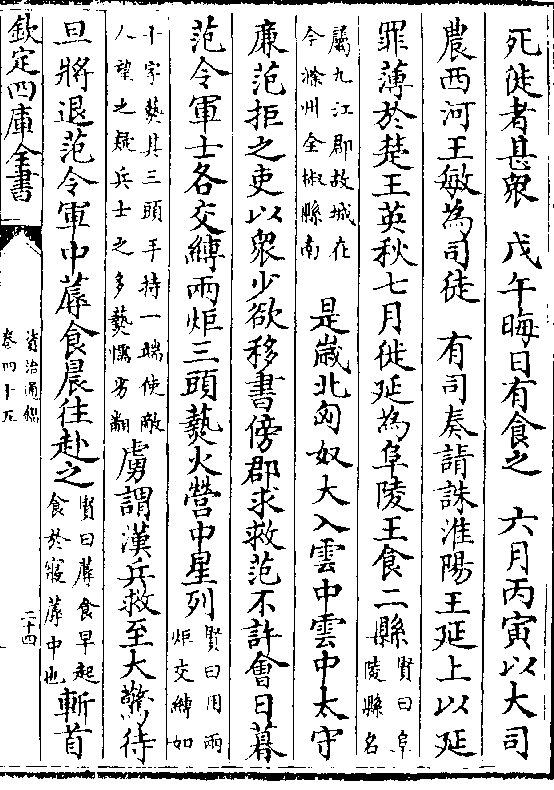 死徙者甚衆　戊午晦日有食之　六月丙寅以大司
農西河王敏為司徒　有司奏請誅淮陽王延上以延
罪薄於楚王英秋七月徙延為阜陵王食二縣賢曰阜陵縣名
屬九江郡故城在今滁州全椒縣南　是嵗北匈奴大入雲中雲中太守
廉范拒之吏以衆少欲移書傍郡求救范不許會日暮
范令軍士各交縛兩炬三頭爇火營中星列賢曰用兩炬交縛如
十字爇其三頭手持一端使敵人望之疑兵士之多爇懦劣翻虜謂漢兵救至大驚待
旦將退范令軍中蓐食晨往赴之賢曰蓐食早起食於寢蓐中也斬首
欽定四庫全書
資治通鑑
卷四十五
二十四